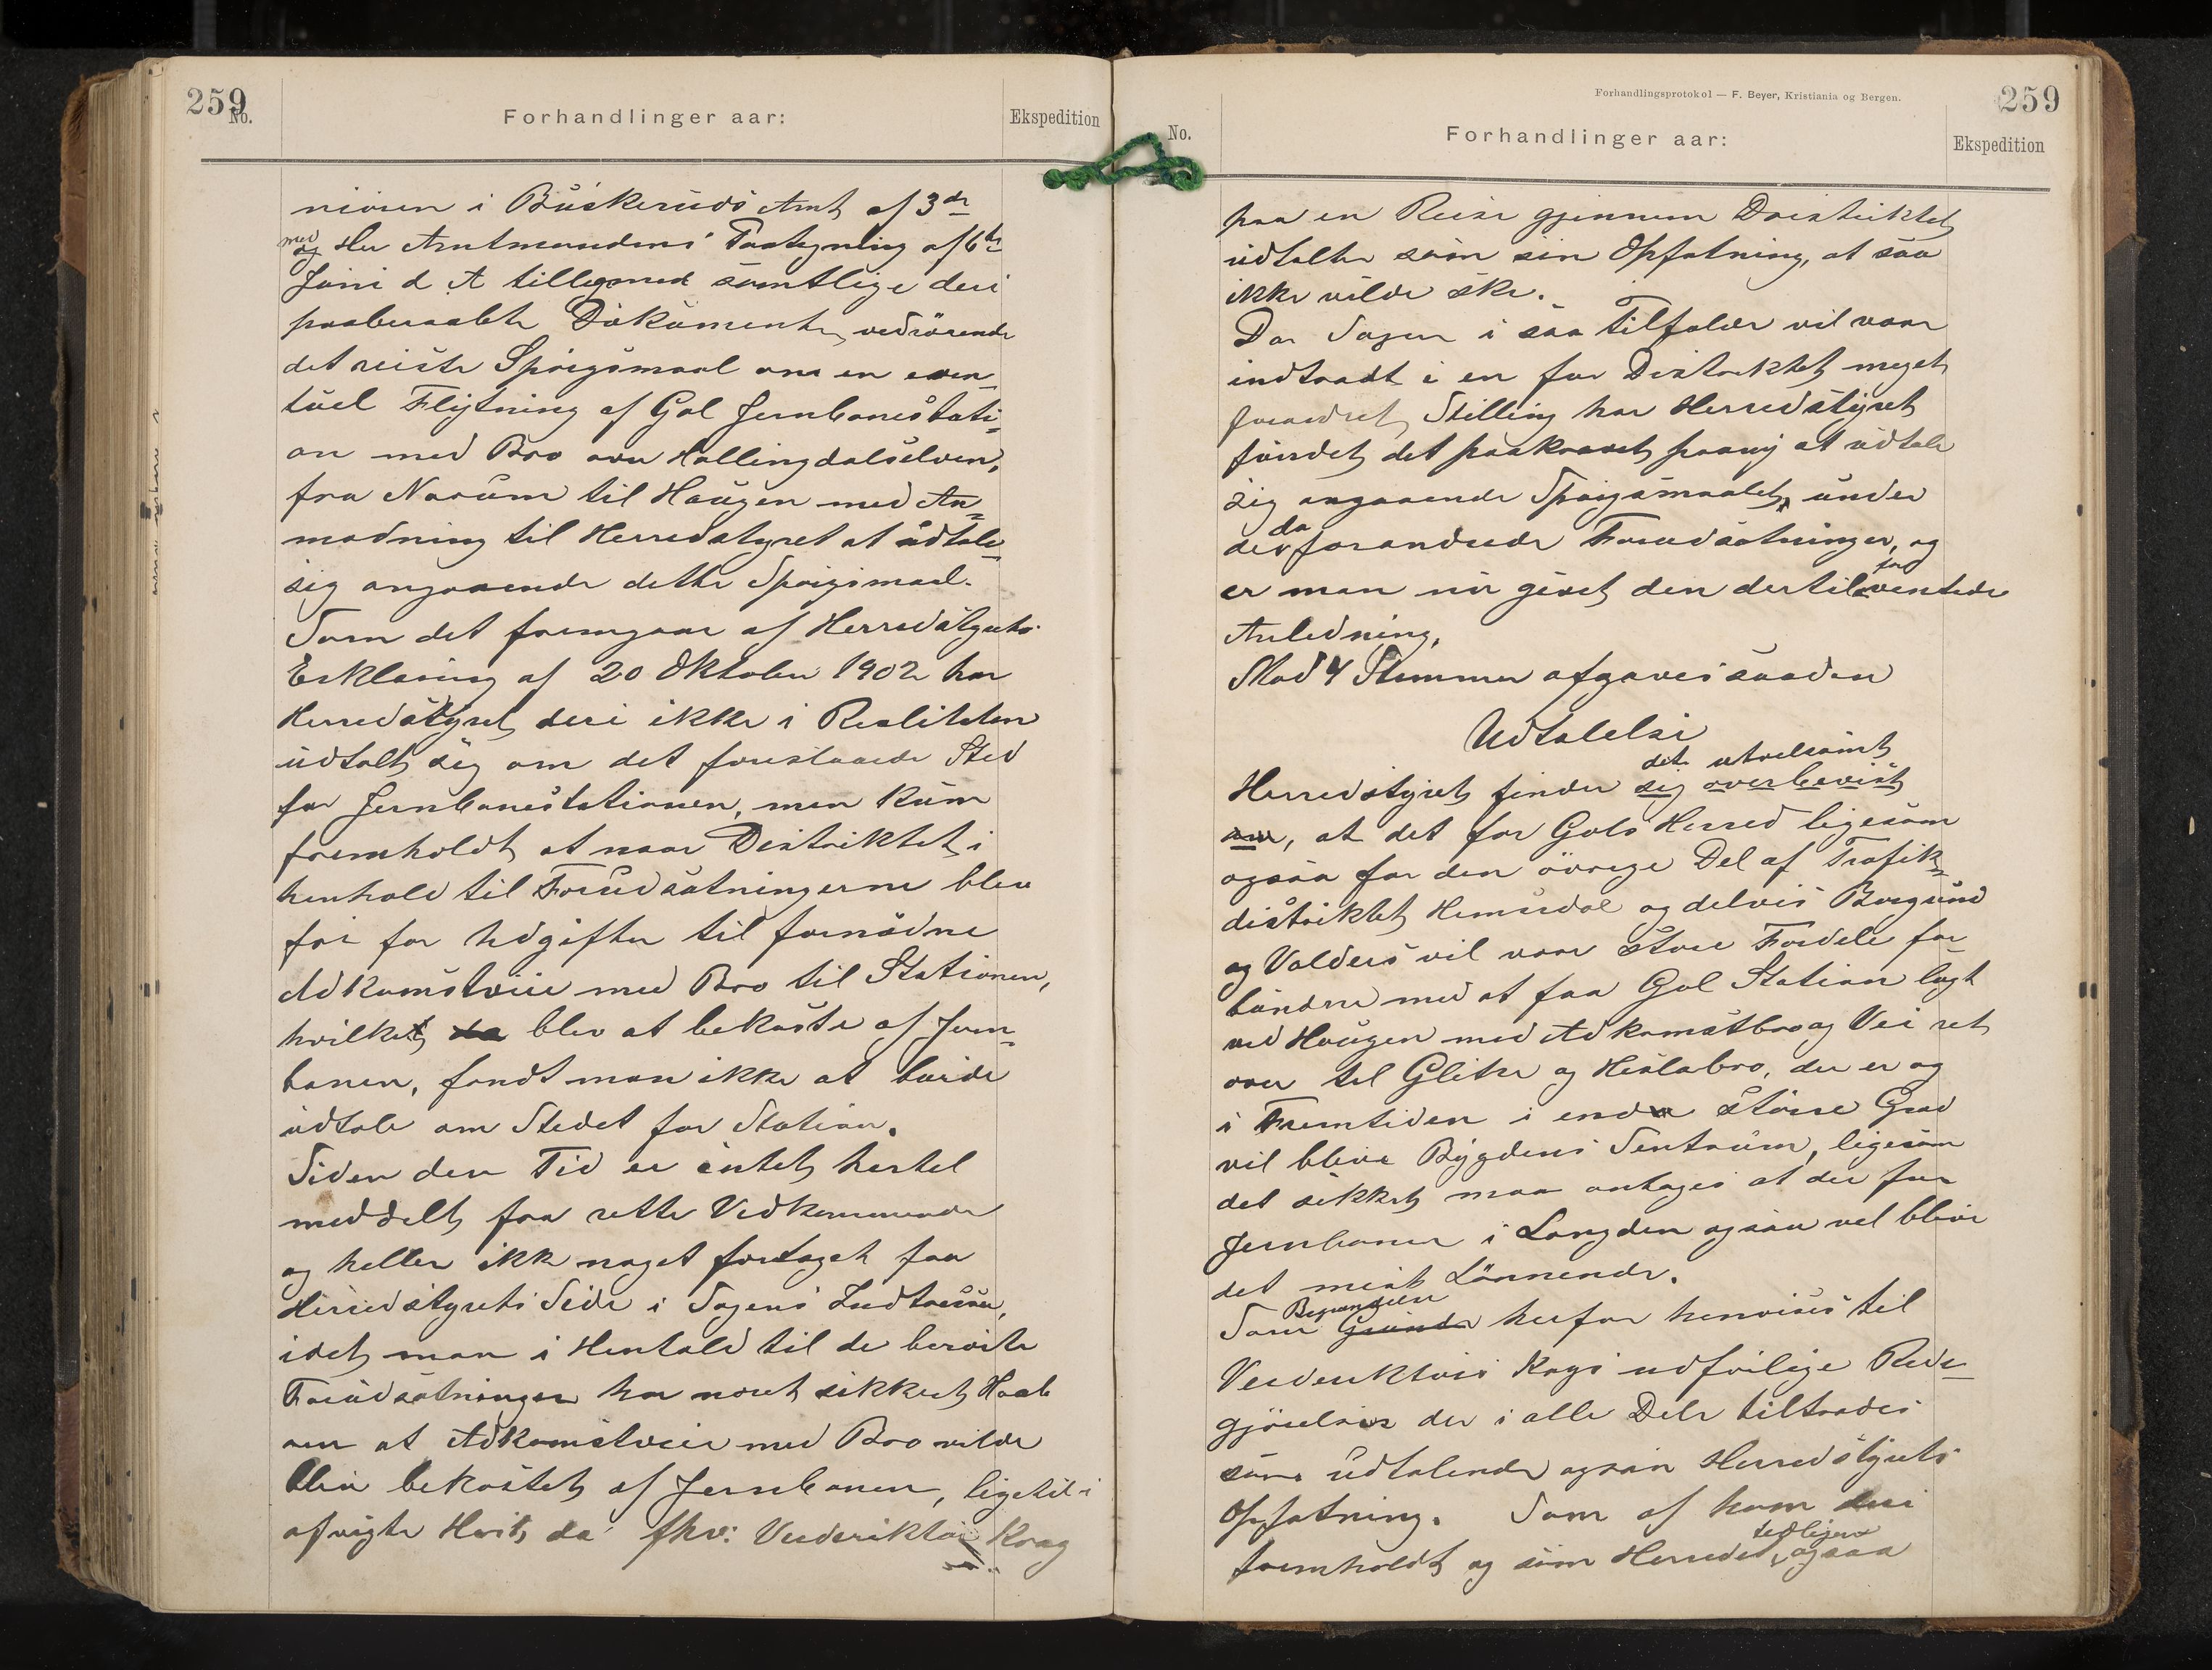 259
No.
Forhandlinger aar:
Ekspedition
nioren i Buskeruds Amt af 3de
med
og Hr Amtmandens Paategning af 6te
Juni d A tilligemed samtlige deri
paaberaabte Dokumenter vedrörende
det reiste Spörgsmaal om en even-
tuel Flytning af Gol Jernbanestati-
on med Bro over Hallingdalselven,
fra Narum til Haugen med An-
modning til Herredstyret at udtale
sig angaaende dette Spörgsmaal.
Som det fremgaar af Herredstyrets
Erklæring af 20 Oktober 1902 har
Herredstyret deri ikke i Realiteten
udtalt sig om det foreslaaede Sted
for Jernbanestationen, men kum
fremholdt at naar Distriktet i
henhold til Forudsætningerne blev
fri for Udgifter til fornödne
Adkomstveie med Bro til Stationen,
hvilket da blev at bekoste af Jern-
banen, fandt man ikke at burde
udtale om Stedet for Station.
Siden den Tid er intet hertel
meddelt fra rette Vedkommende
og heller ikk noget foretaget fra
Herredstyrets Side i Sagens Indtresse,
idet man i Henhold til de berörte
Forudsætninger har næret sikkert Haab
om at Adkomstveie med Bro vilde
bliv bekostet af Jernbanen, ligetil i
afvigte Höst, da fhv: Veiderektör Krag
Forhandlingsprotokol — F. Beyer, Kristiania og Bergen.
259
No.
Forhandlinger aar:
Ekspedition
paa en Reise gjennem Distriktet
udtalte som sin Opfatning, at saa
ikke vilde ske.
Da Sagen i saa Tilfælde vil være
indtraadt i en for Distriktet meget
forandret Stilling har Herredstyret
fundet det paakrævet paany at udtale
sig angaaende Spörgsmaalet under
da
de forandrede Forudsætninger, og
for
er man nu givet den dertil ventede
Anledning.
Mod 4 Stemmer afgaves saaden
Udtalelse
det utvelsomt
Herredstyret finder sig overbevist
om, at det for Gols Herred ligesom
ogsaa for den övrige Del af Trafik-
distriktet Hemsedal og delvis Borgund
og Valders vil være store Fordele for-
bundne med at faa Gol Station lagt
ved Haugen med Adkomstbro og Vei ret
over til Glitre og Heslabro, der er og
i Fremtiden i enda större Grad
vil blive Bygdens Sentrum, ligesom
det sikkert maa antages at der for
Jernbanen i Længden ogsaa vel blive
det mest Lönnende.
Begrundelse
Som Grunde herfor henvises til
Veiderektör Krags udförlige Rede-
gjörelser der i alle Dele tiltrædes
som udtalende ogsaa Herredstyrets
Opfatning. Som af ham deri
tedligere
fremholdt og som Herredet ogsaa